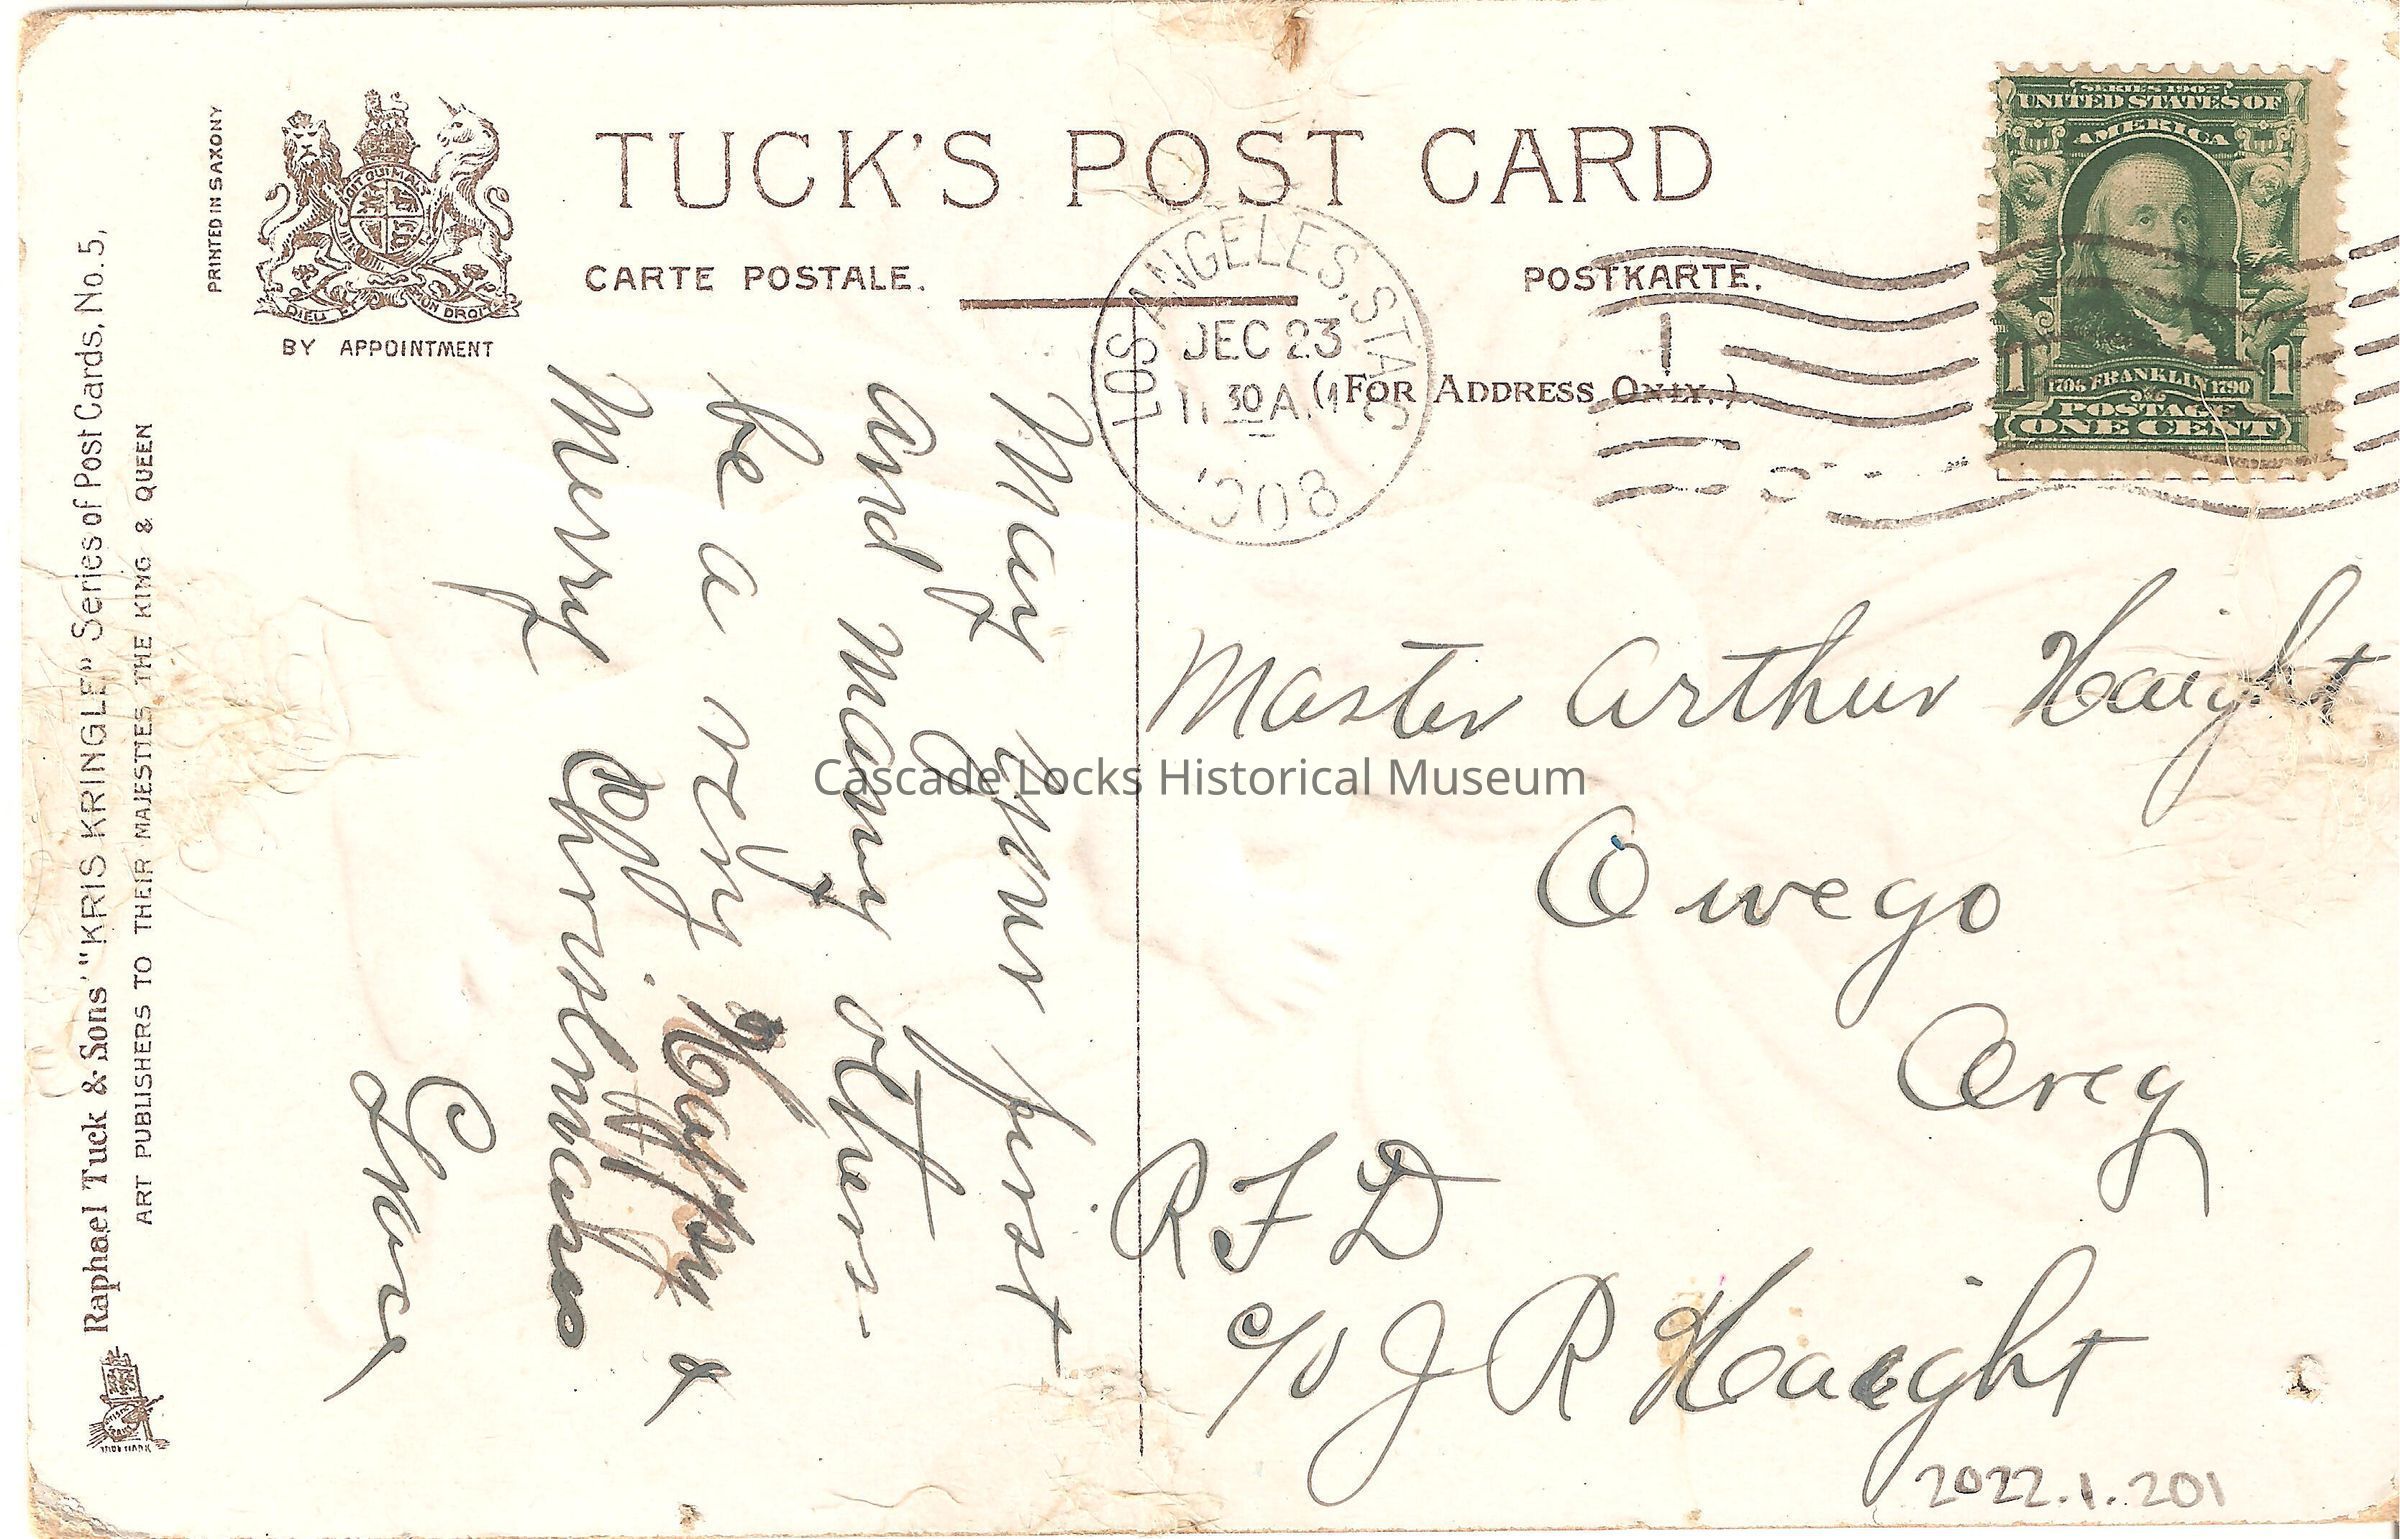 TUCK'S POST CARD
CARTE POSTALE.
POSTKARTE.
(FOR ADDRESS ONLY.)
PRINTED IN SAXONY
DIEU ET MON DROIT
BY APPOINTMENT
Raphael Tuck & Sons' "KRIS KRINGLE" Series of Post Cards, No. 5,
ART PUBLISHERS TO THEIR MAJESTIES THE KING & QUEEN
TRADE MARK
LOS ANGELES, STA C
DEC 23
11 30 A.M
1908
1
SERIES 1902
UNITED STATES OF
AMERICA
1706 FRANKLIN 1790
1 1
POSTAGE
ONE CENT
May your first
and many others
be a very Happy &
Merry Christmas
Grace
Master Arthur Haight
Owego
Oreg
R F D
c/o J R Haight
2022.1.201
Cascade Locks Historical Museum